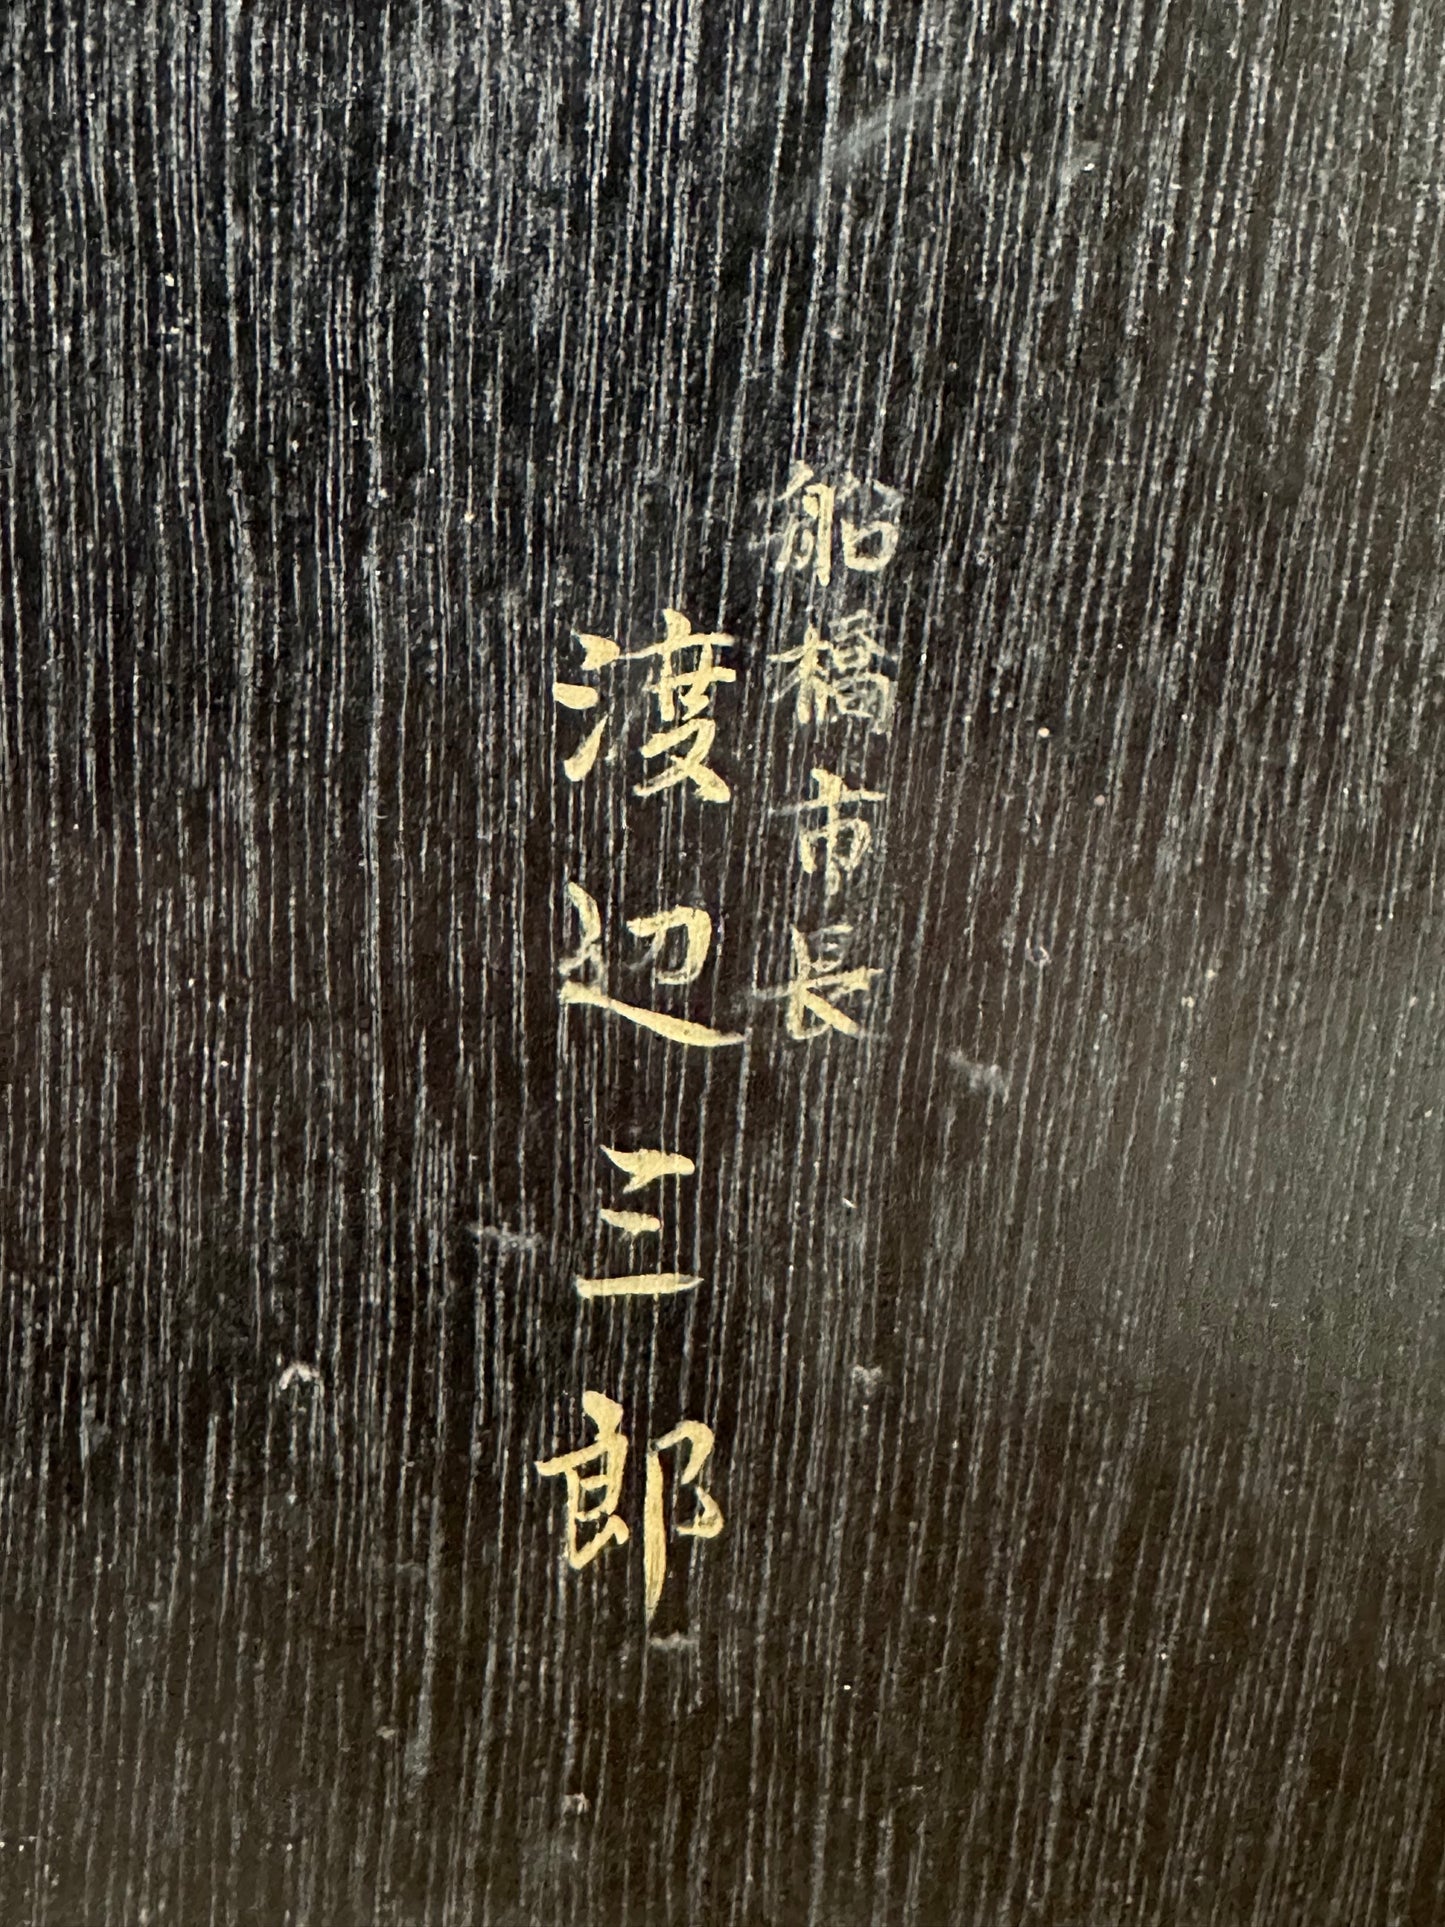 船橋市長
渡辺三郎